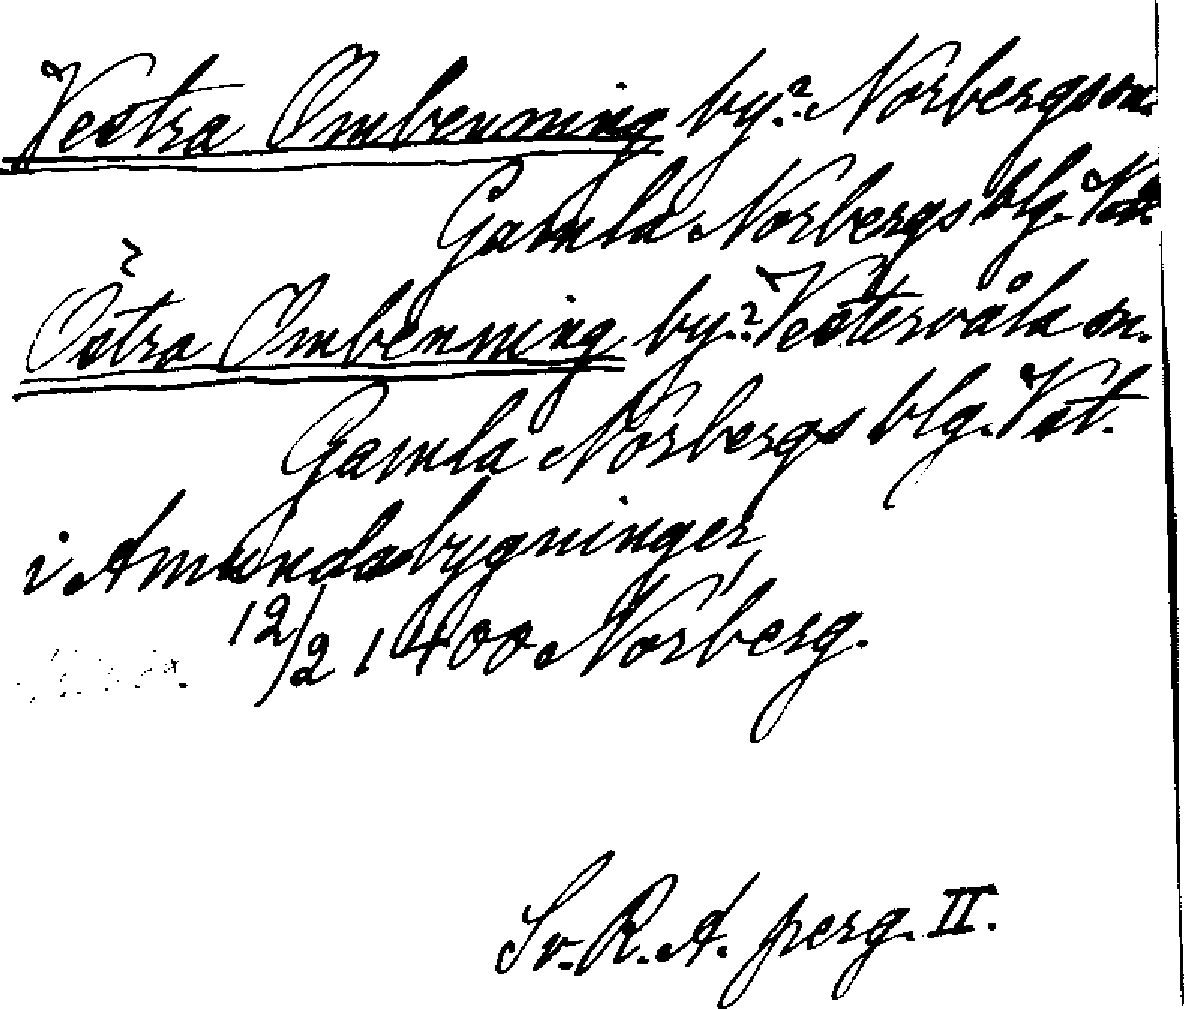 Vestra Ombenning by.? Norbergs sn.
Gamla Norbergs blg. Vstl
Östra Ombenning by.? Vestervåla sn.
Gamla Norbergs blg. Vst.
i Amundabygninger
12/2 1400. Norberg.
Sv. R. A. perg. II.